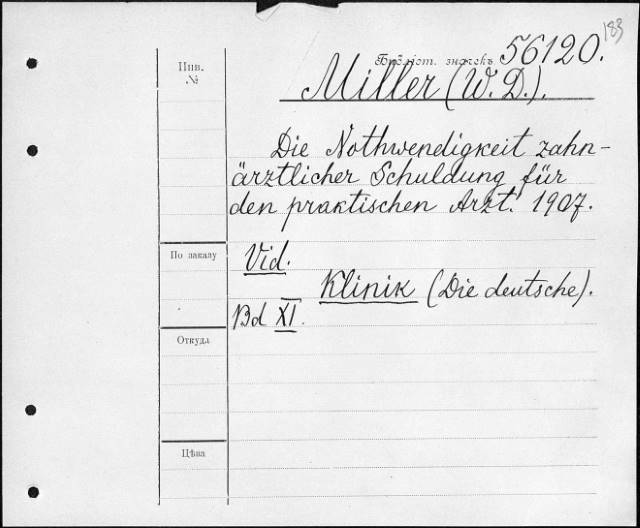 183
Инв.
№
Библіот. значекъ 56120.
Miller (W. D.).
Die Nothwendigkeit zahn-
ärztlicher Schuldung für
den praktischen Arzt. 1907.
По заказу
Vid.
Klinik (Die deutsche).
Bd XI.
Откуда
Цѣна